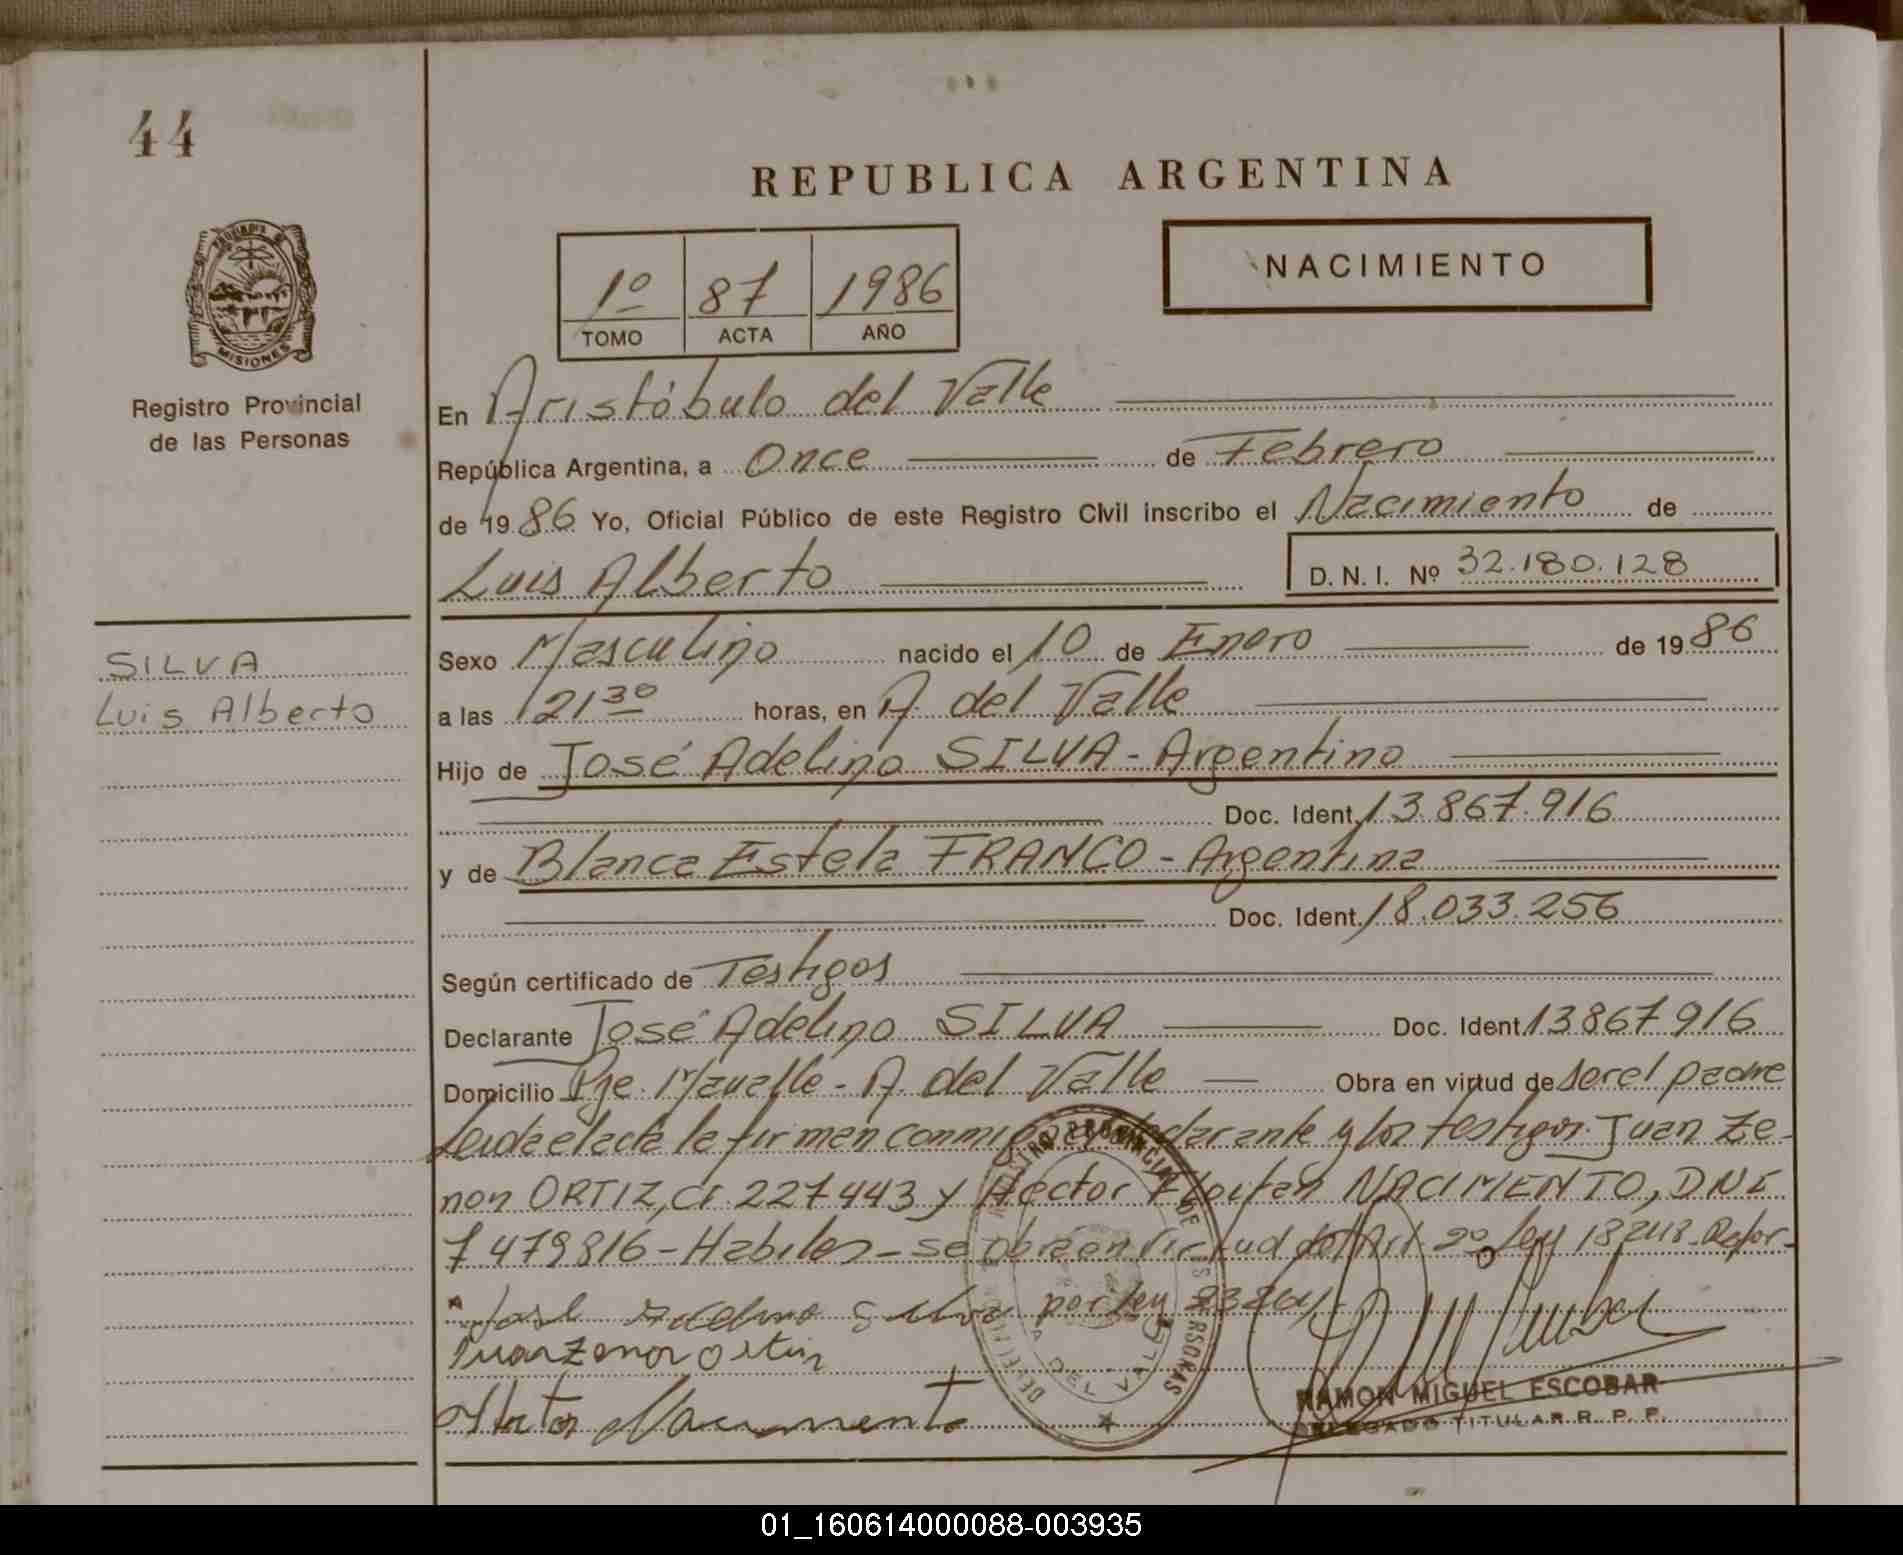 44
REPUBLICA ARGENTINA
NACIMIENTO
1º 87 1986
TOMO ACTA AÑO
MISIONES
Registro Provincial
de las Personas
En Aristóbulo del Valle
República Argentina, a Once de Febrero
de 1986 Yo, Oficial Público de este Registro Civil inscribo el Nacimiento de
Luis Alberto D. N. I. Nº 32.180.128
SILVA
Luis Alberto
Sexo Masculino nacido el 10 de Enero de 1986
a las 21 30 horas, en A. del Valle
Hijo de José Adelino SILVA - Argentino
Doc. Ident. 13.867.916
y de Blanca Estela FRANCO - Argentina
Doc. Ident. 18.033.256
Según certificado de Testigos
Declarante José Adelino SILVA Doc. Ident. 13867916
Domicilio Pje. Mavalle - A. del Valle Obra en virtud de ser el padre
Leida el acta la firman conmigo declarante y los testigos Juan Ze-
non ORTIZ, CI. 227443 y Hector NACIMENTO, DNI
7479816 - Habiles - se obra en virtud del Art 2º ley 18248 - Refor-
por ley
Juan Zenon ortiz
Hector Nacimento
RAMON MIGUEL ESCOBAR
DELEGADO TITULAR R. P. P.
01_160614000088-003935